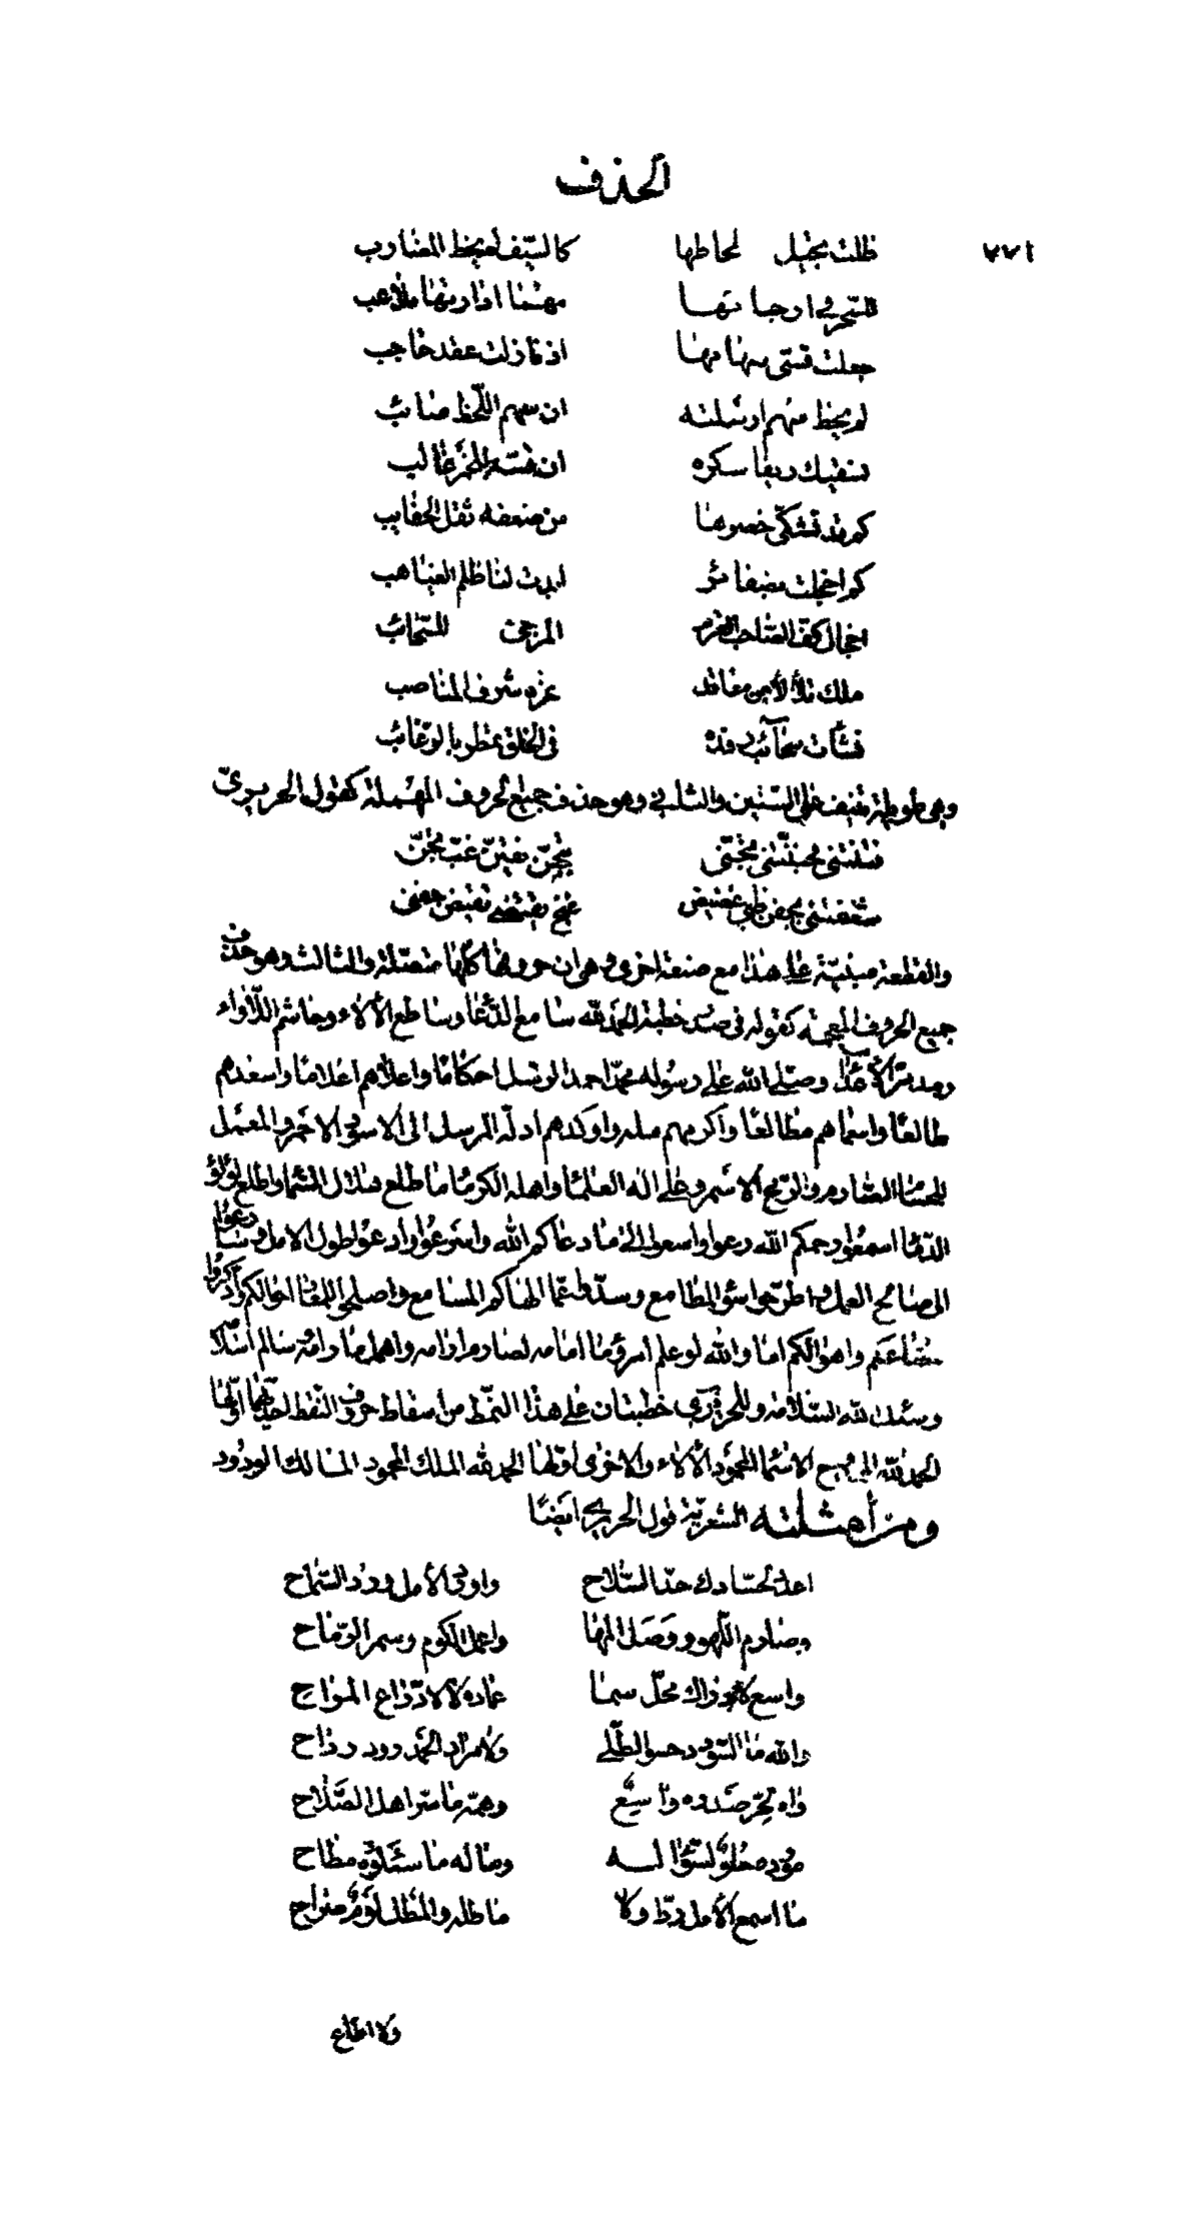 الحذف
٧٧١
ظلت بخيل لحاظها كالسيف لم يخط المضارب
للسحر في ارجائها مهما اذا رمنا ملاعب
جعلت قسي سهامها اذ غازلت عقد حاجب
لم يخط سهم ارسلته ان سهم اللحظ صائب
تسقيك ريقا سكره ان قسته للخمر غالب
كم قد تشكى خصرها من ضعفه ثقل الحقايب
كم اخجلت بضفائر ابدت لنا ظلم الغياهب
اخجال كف الصاحب القرم المرجى للسحائب
ملك تلألأ من معاقد عزه شرف المناصب
نشأت سحائب رفده في الخلق تمطر بالرغائب
وهي طويلة تنيف على الستين والثاني وهو حذف جميع الحروف المهملة كقول الحريري
فتنتني فجننتني تجني بتجن يفتن غب تجني
شغفتني بجفن ظبي غضيض غنج يقتضي تغيض جفني
والقطعة مبنية على هذا مع صنعة اخرى وهي ان حروفها كلها متصلة والثالث وهو حذف
جميع الحروف المعجمة كقوله في صدر خطبة الحمد لله سامع الدعاء وساطع الألاء وحاسم اللأواء
ومدمر الأعداء وصلى الله على رسوله محمد احمد الرسل احكاما واعلاهم اعلاما واسعدهم
طالعا واسماهم مطالعا واكرمهم ملة واوكدهم ادلة المرسل الى الاسود والاحمر والمعمل
للحسام الصارم والرمح الاسمر وعلى اله العلماء واهله الكرماء ما طلع هلال السماء واطلع لؤلؤ
الدماء اسمعوا رحمكم الله وعوا واسعوا الى ما دعاكم الله وارعووا ودعوا طول الامل ودعوا
المصالح العمل واطرحوا سوء المطامع وسدوا عما الهاكم المسامع واصلحوا للمقال احوالكم واذكروا
واهوالكم اما والله لو علم امرؤ ما امامه لصارم مرامه واهمل مادامه وسالم اسلاما
وسئل الله السلامة وللحريري خطبتان على هذا النمط من اسقاط حروف النقط احديهما اولها
الحمد لله الممدوح الاسماء المحمود الألاء والاخرى اولها الحمد لله الملك المحمود المالك الودود
ومن أمثلته الشعرية قول الحريري ايضا
اعدد لحسادك حد السلاح واورد الأمل ورد السماح
وصارم اللهو ووصل المها واعمل الكوم وسمر الرماح
واسع لادراك محل سما عماده لا لادراع المراح
والله ما السودد حسو الطلى ولا مراد الحمد رود رداح
واه لحر صدره واسع وهمه ما سر اهل الصلاح
مورده حلو لسؤاله وماله ما سئلوه مطاح
ما اسمع الأمل ردا ولا ماطله والمطل لؤم صراح
ولا اطاع